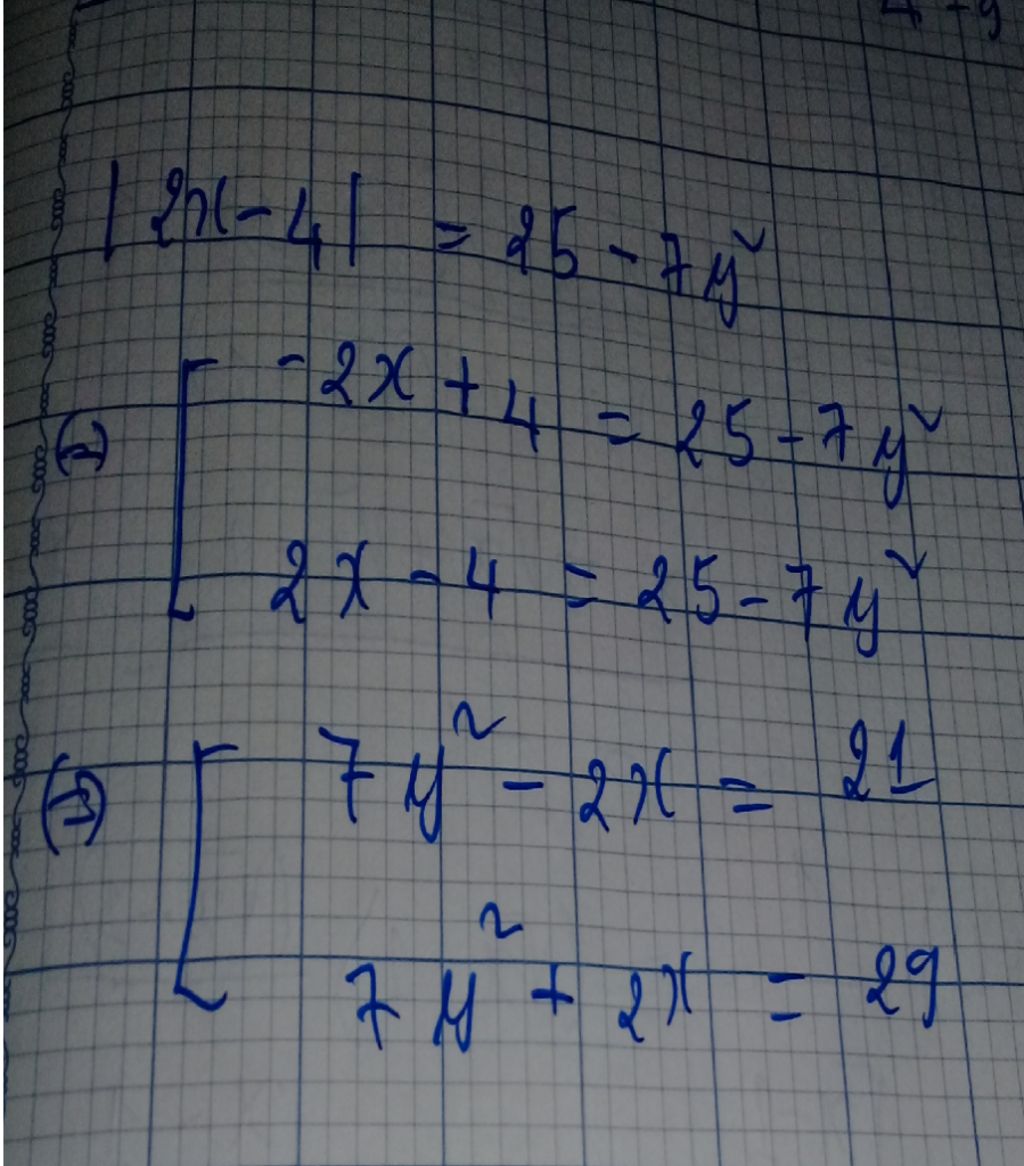 4 - 9
| 2x - 4 | = 25 - 7y²
(1) [ - 2x + 4 = 25 - 7y²
2x - 4 = 25 - 7y²
(1) [ 7y² - 2x = 21
7y² + 2x = 29